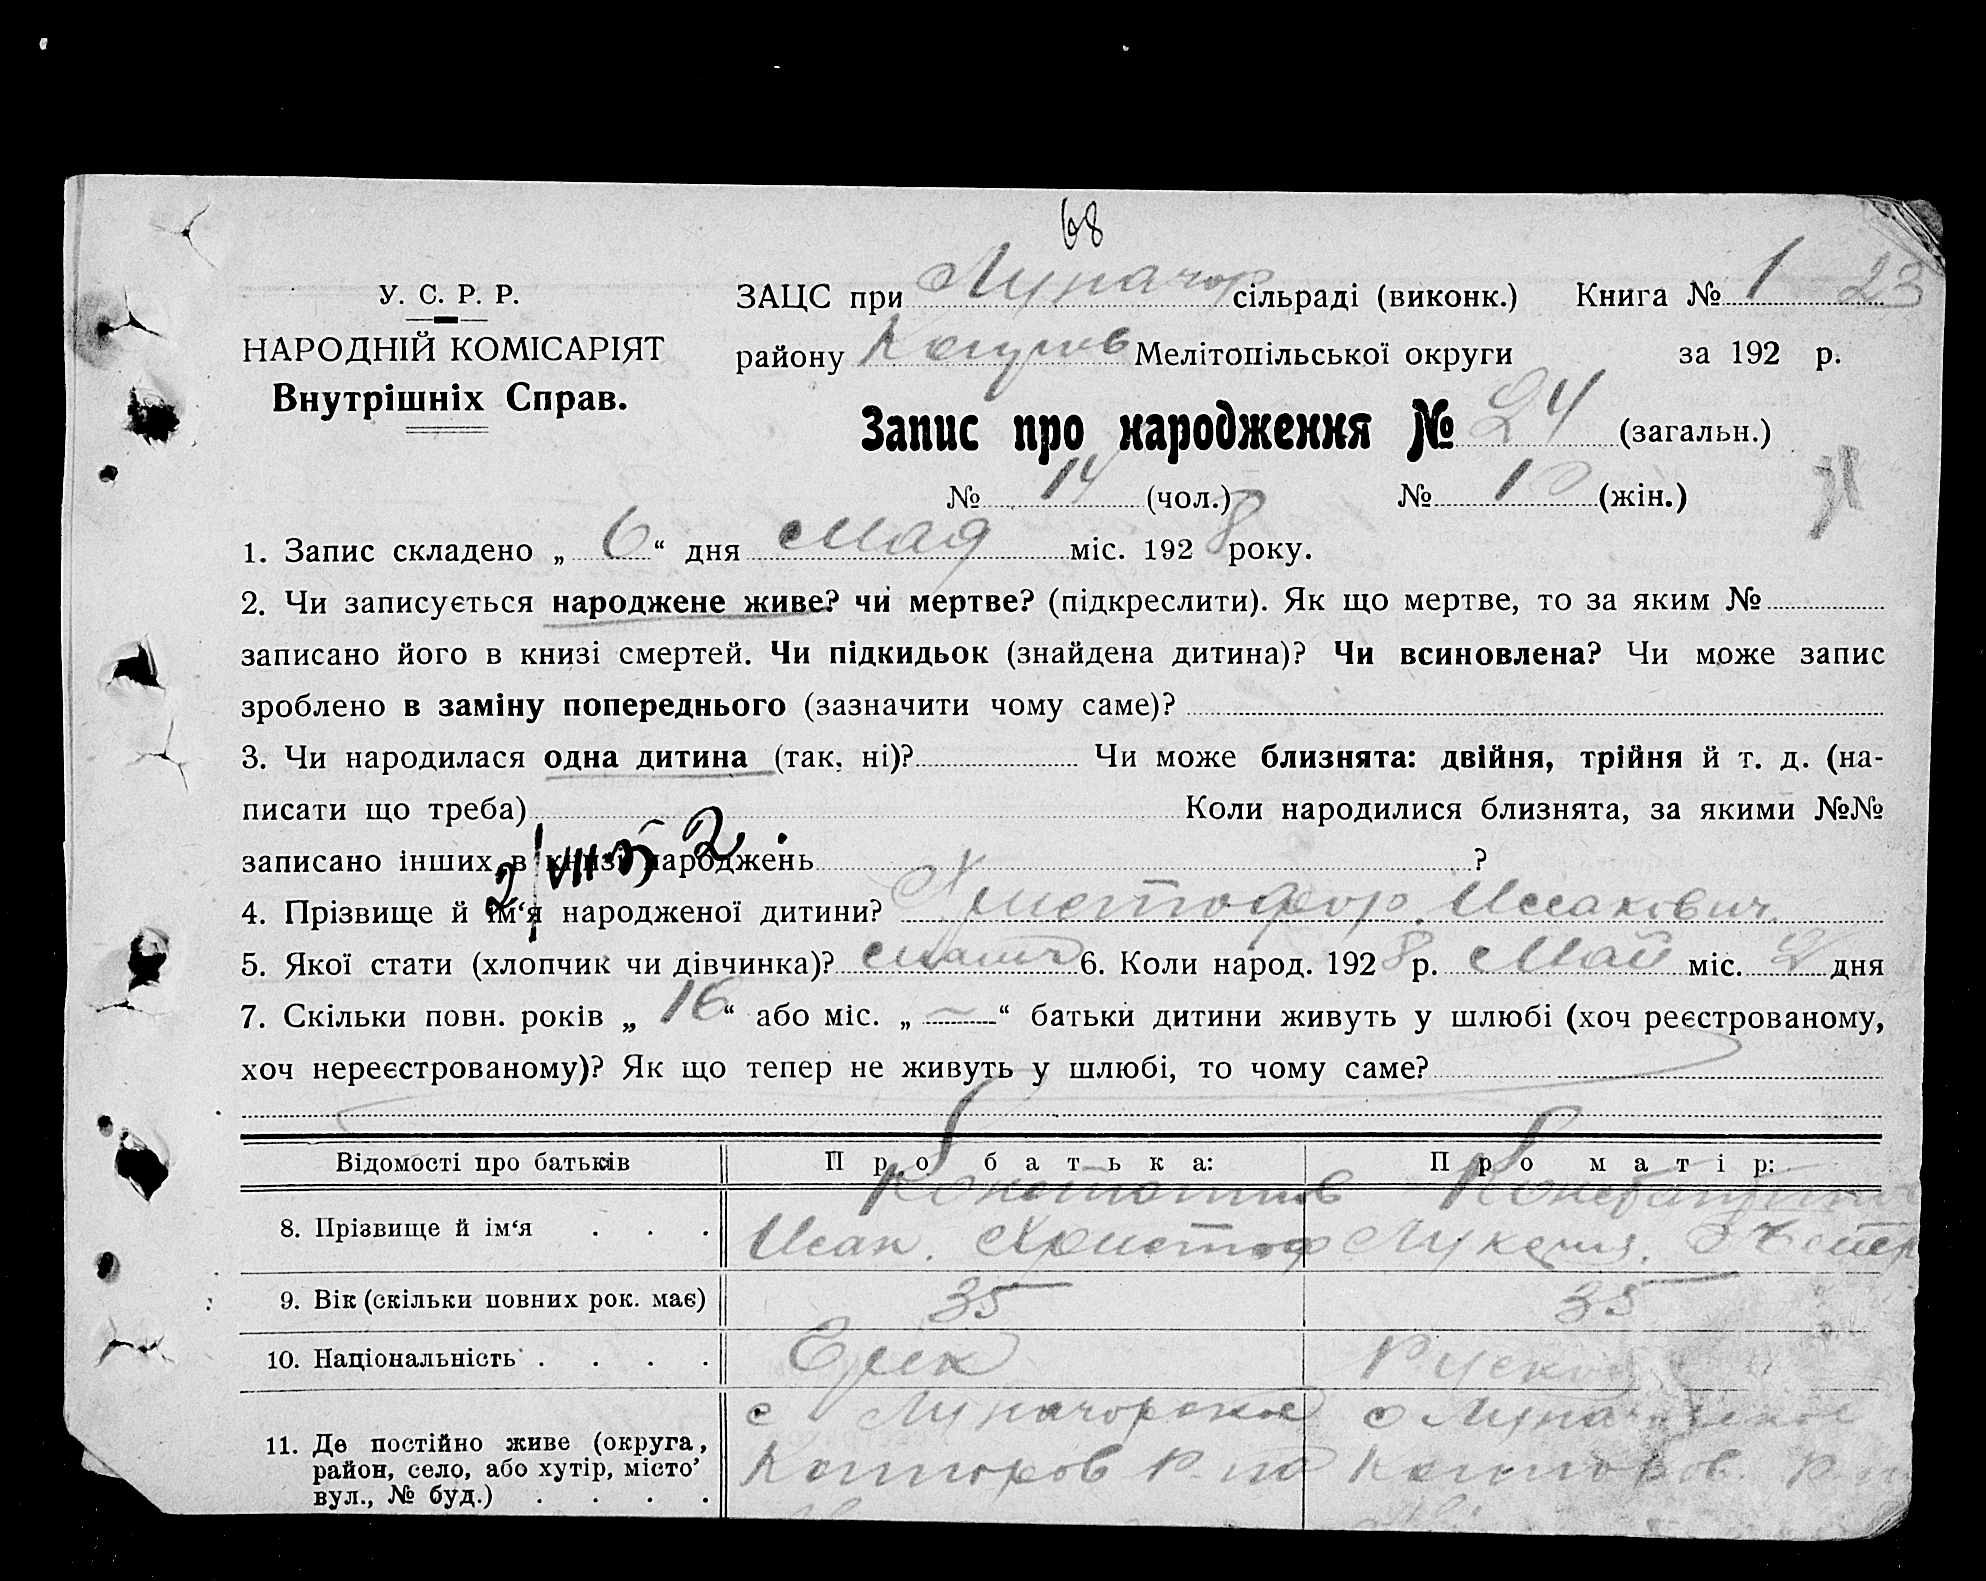 68
У. С. Р. Р.
НАРОДНІЙ КОМІСАРІЯТ
Внутрішніх Справ.
ЗАЦС при Луначор сільраді (виконк.) Книга № 1 23
району Мелітопільської округи за 192 р.
Запис про народження № 24 (загальн.)
№ 14 (чол.) № 10 (жін.)
1. Запис складено „ 6 “ дня Мая міс. 192 8 року.
2. Чи записується народжене живе? чи мертве? (підкреслити). Як що мертве, то за яким №
записано його в книзі смертей. Чи підкидьок (знайдена дитина)? Чи всиновлена? Чи може запис
зроблено в заміну попереднього (зазначити чому саме)?
3. Чи народилася одна дитина (так, ні)? Чи може близнята: двійня, трійня й т. д. (на-
писати що треба) Коли народилися близнята, за якими №№
записано інших в книзі народжень ?
4. Прізвище й ім‘я народженої дитини? Христофор Исакович
5. Якої стати (хлопчик чи дівчинка)? 6. Коли народ. 192 8 р. Май міс. 2 дня
7. Скільки повн. років „ 16 “ або міс. „ — “ батьки дитини живуть у шлюбі (хоч реєстрованому,
хоч нереєстрованому)? Як що тепер не живуть у шлюбі, то чому саме?
Відомості про батьків Про батька: Про матір:
8. Прізвище й ім‘я . . .
Исак. Христоф
9. Вік (скільки повних рок. має) 35 35
10. Національність . . . . Грек Руская
11. Де постійно живе (округа, с Луначорское с Луначорское
район, село, або хутір, місто’
вул., № буд.) . . . .